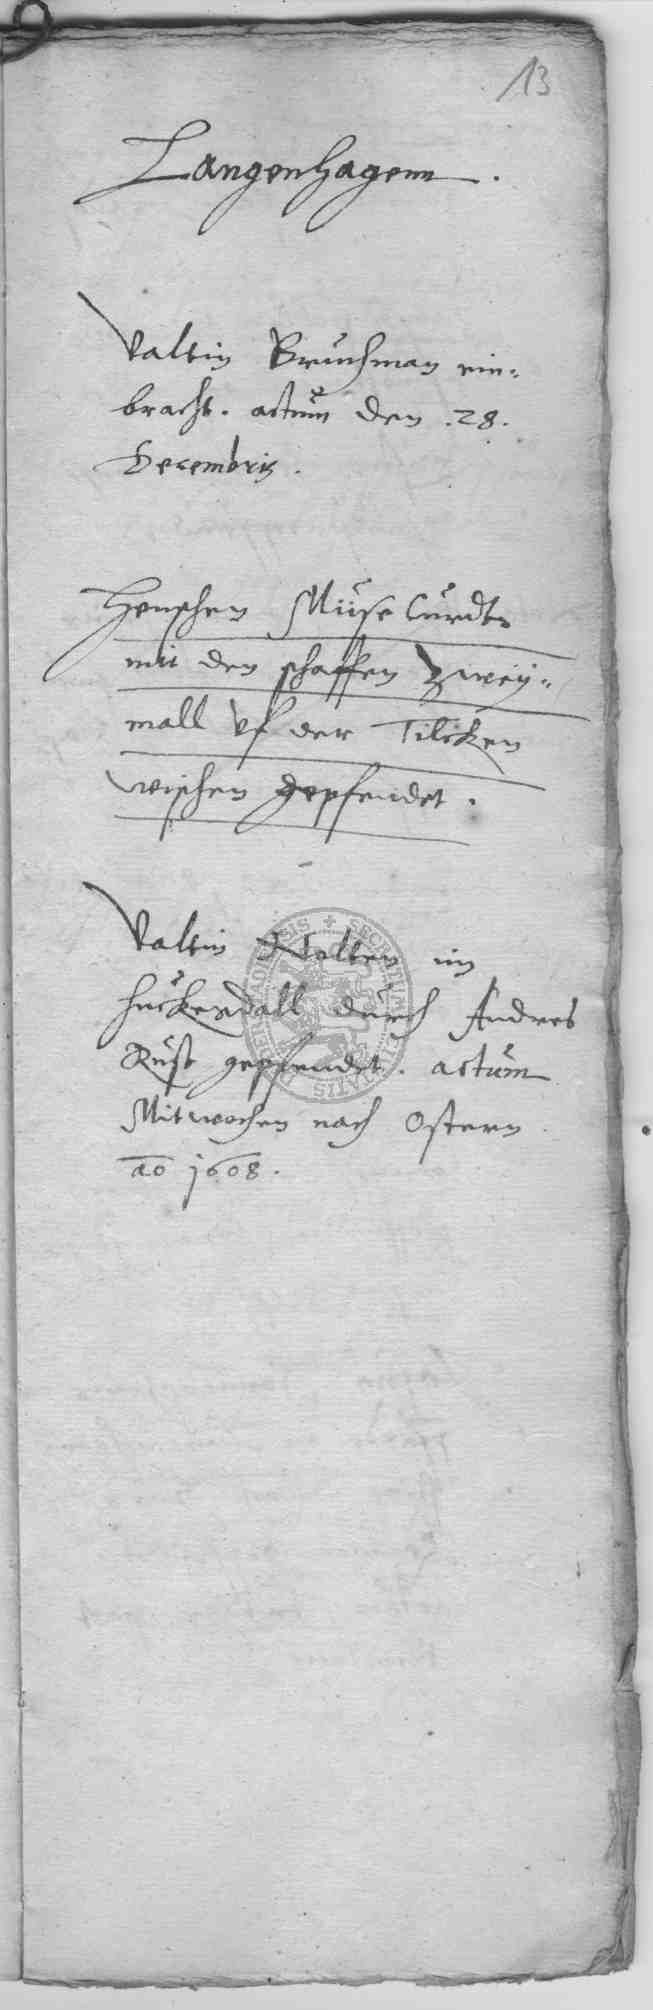 13
Langenhagenn.
Valtin Bruchman ein-
bracht. actum den .28.
Decembris.
Henschen Müse Curdts
mit den schaffen zweÿ-
mall vf der Tilcken
wischen gepfendet.
Valtin Nolten im
huckerdall durch Andres
Rust gepfendet. actum
Mitwochen nach Ostern
ao 1608.
SECRETUM CIVITATIS